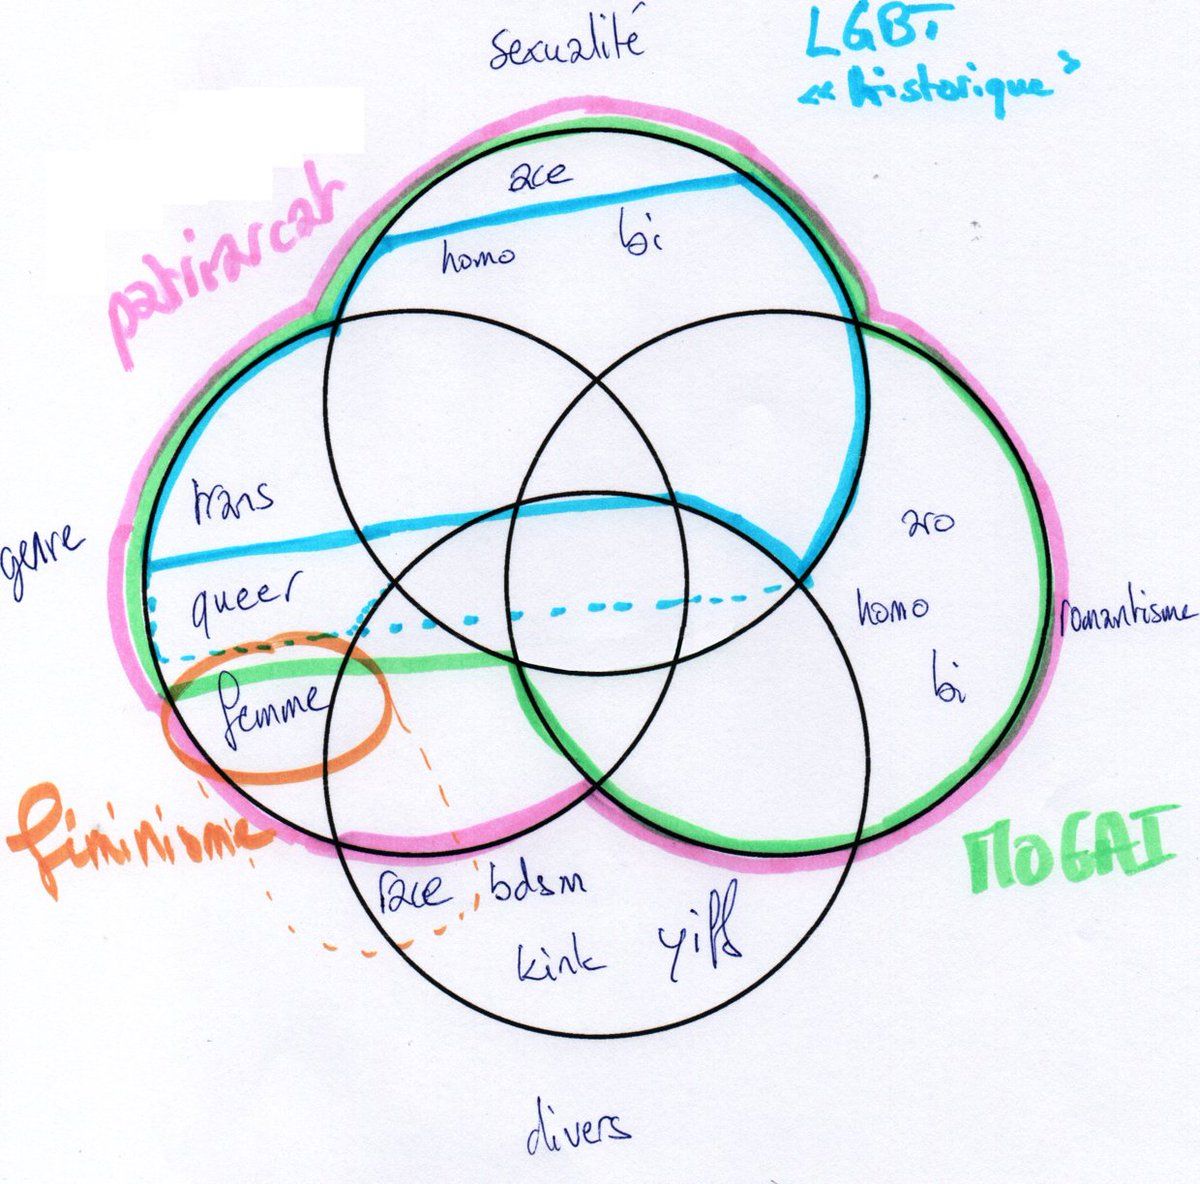 sexualité
LGBT
« historique »
patriarcat
ace
homo
bi
trans
genre
queer
femme
aro
homo
romantisme
bi
féminisme
MOGAI
race
bdsm
kink
yiff
divers